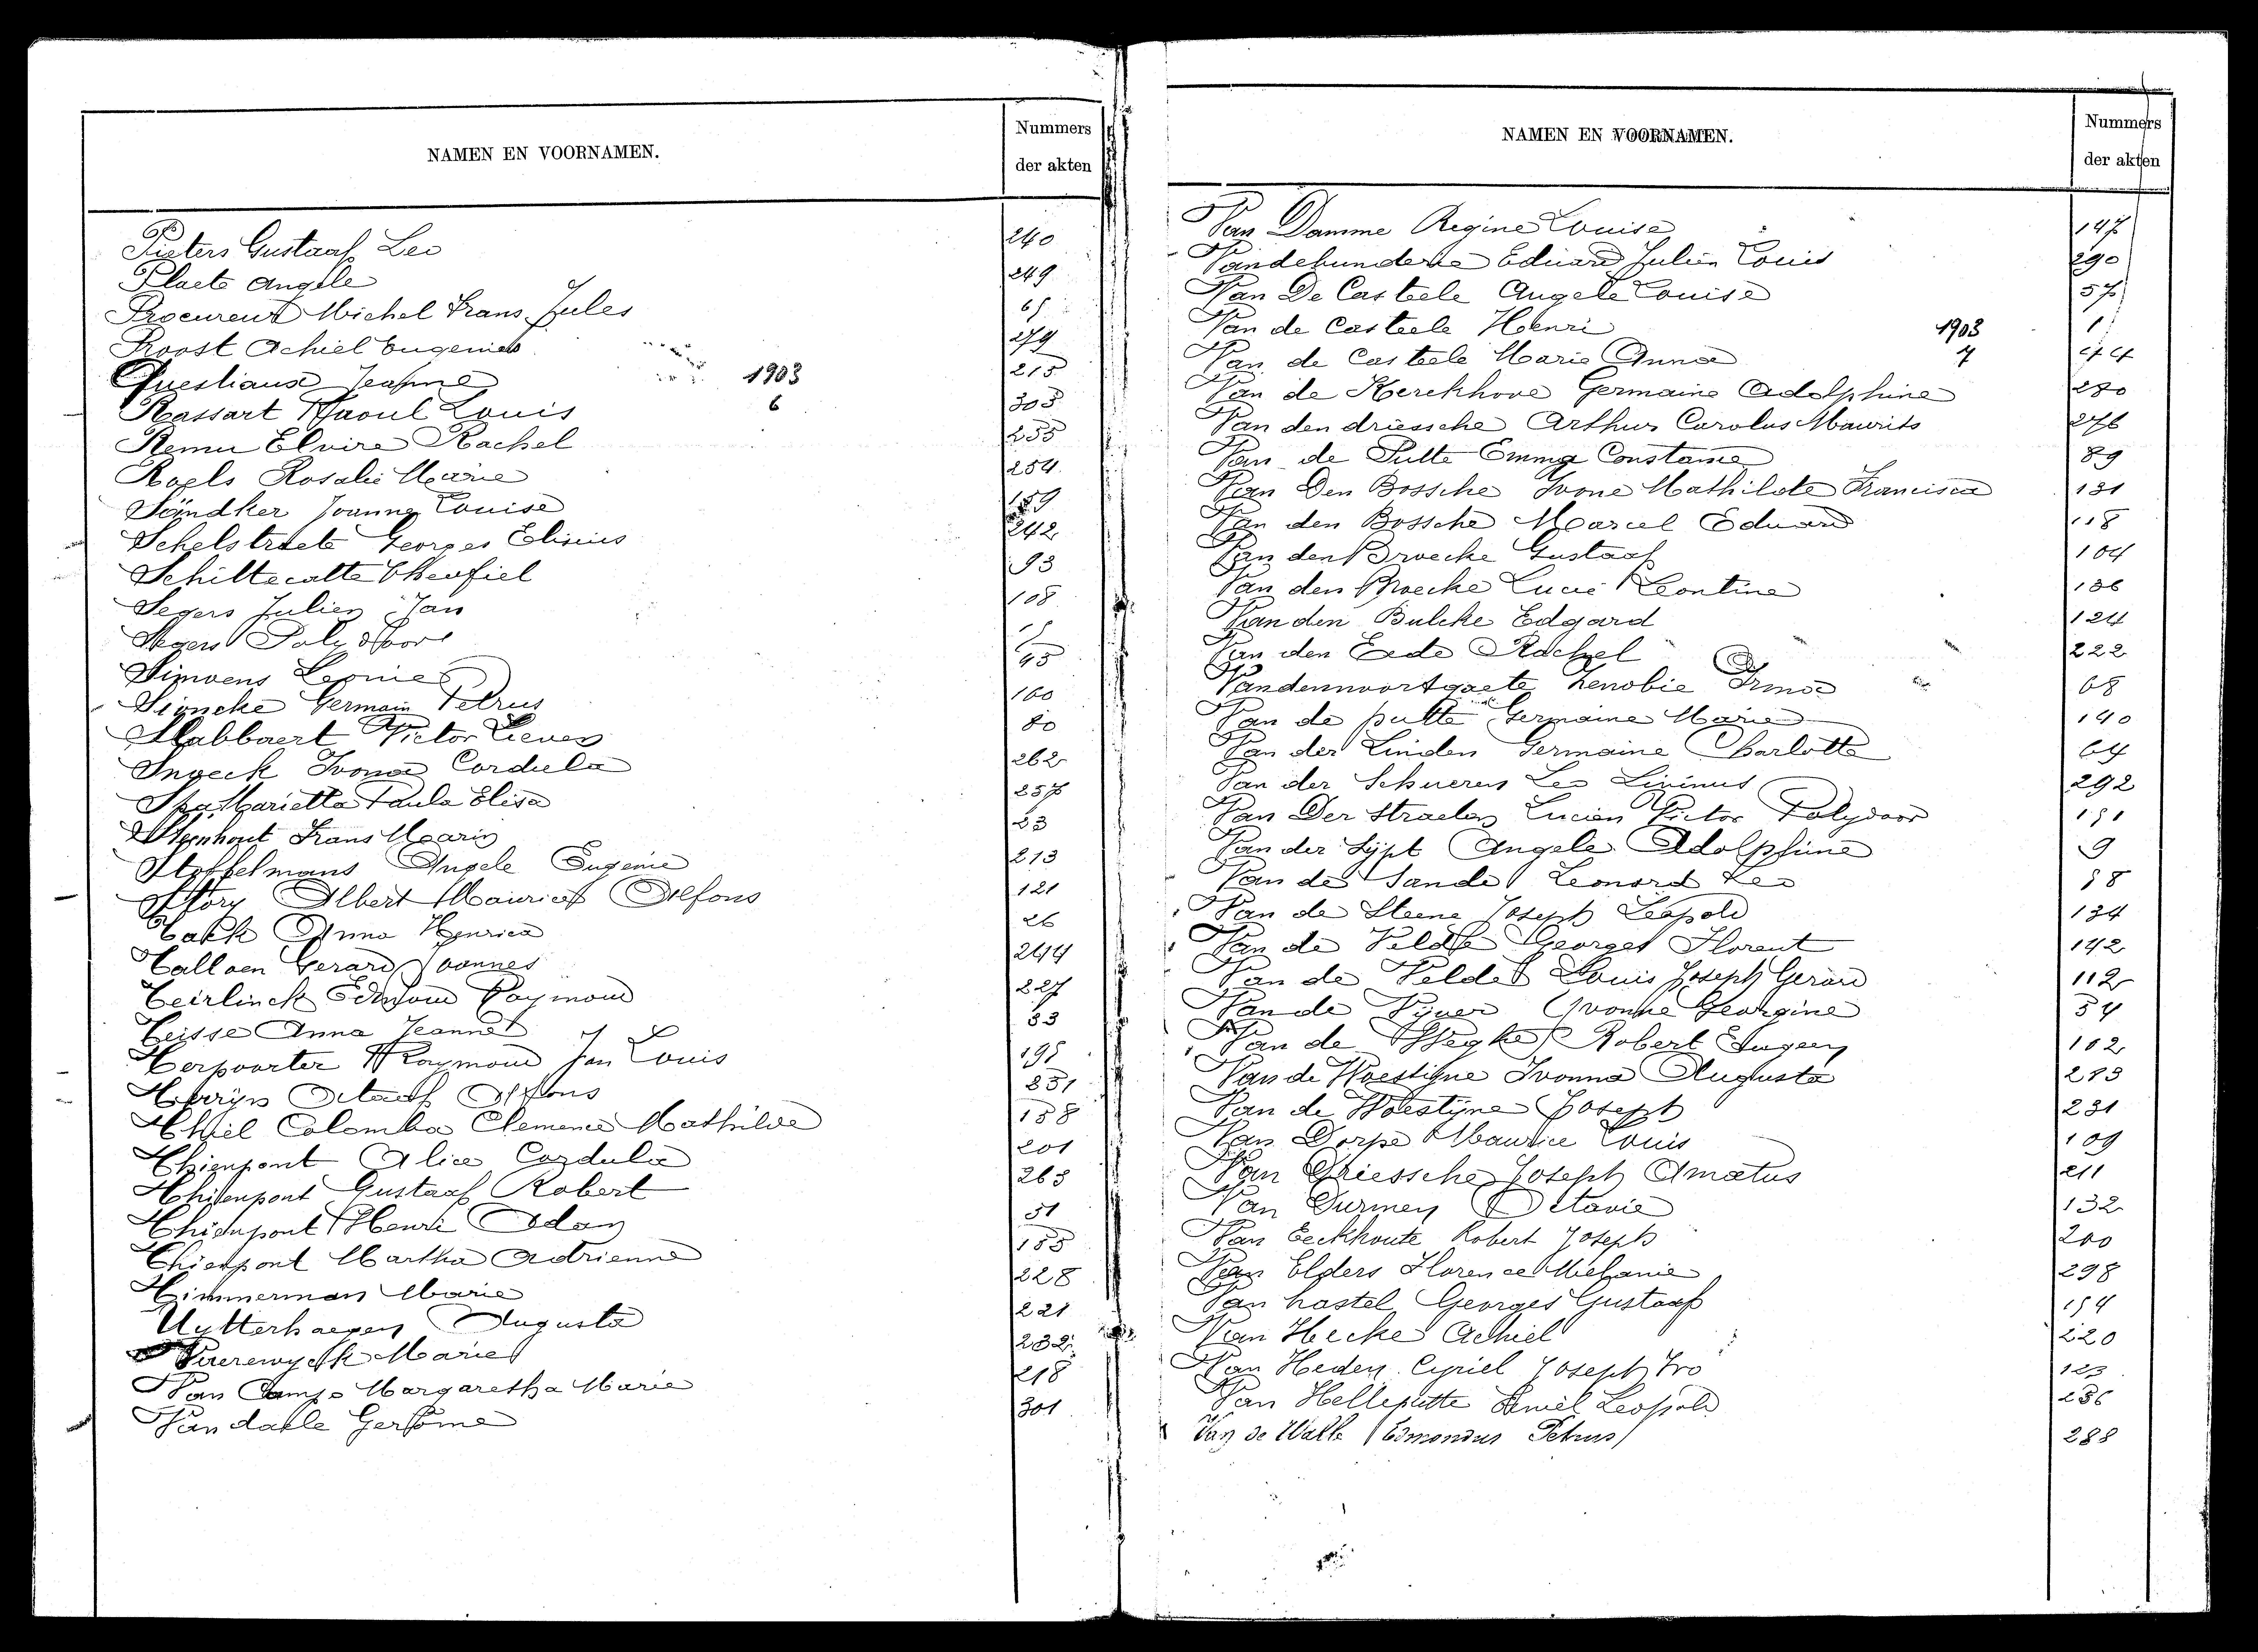 NAMEN EN VOORNAMEN.
Nummers
der akten
Pieters Gustaaf Leo 240
Plaete Angele 249
Procureur Michel Frans Jules 65
Proost Achiel Eugenies 279
Questiaux Jeanne 1903 215
Rassart Raoul Louis 6 303
Remu Elvire Rachel 255
Roels Rosalie Marie 254
Sändker Joanna Louise 159
Schelstraete Georges Elisius 242
Schiltecatte Theofiel 93
Segers Julien Jan 108
Segers Polydoor 15
Simoens Leonie 45
Sioncke Germain Petrus 160
Slabbaert Victor Lieven 80
Snoeck Ivona Cordula 262
Spa Marietta Paula Elisa 257
Steenhout Frans Marie 23
Stoffelmans Angele Eugenie 213
Story Albert Maurice Alfons 121
Tack Anna Henrica 26
Talloen Gerard Joannes 244
Teirlinck Edmond Raymond 227
Teisse Anna Jeanne 33
Terpoorter Raymond Jan Louis 195
Octaaf Alfons 251
Thiel Colomba Clemence Mathilde 158
Thienpont Alice Cordula 201
Thienpont Gustaaf Robert 263
Thienpont Henri Adan 51
Thienpont Martha Adrienne 155
Timmerman Marie 228
Uytterhaegen Augusta 221
Marie 232
Van Camp Margaretha Marie 218
Van daele Gerome 301
NAMEN EN VOORNAMEN.
Nummers
der akten
Van Damme Regine Louise 147
Eduard Julien Louis 290
Van De Casteele Angele Louise 57
Van de Casteele Henri 1903 1
Van de Casteele Marie Anna 7 274
Van de Kerckhove Germaine Adolphine 280
Van den driessche Arthur Carolus Maurits 276
Van de Putte Emma Constance 89
Van Den Bossche Ivone Mathilde Francisca 131
Van den Bossche Marcel Eduard 118
Van den Broecke Gustaaf 104
Van den Broecke Lucie Leontine 136
Van den Bulcke Edgard 124
Van den Eede Rachel 222
Vandennoortgaete Zenobie Irma 68
Van de putte Germaine Marie 140
Van der Linden Germaine Charlotte 64
Van der Schueren Leo Livinus 292
Van Der Straeten Lucien Victor Polydoor 151
Van der Sijpt Angele Adolphine 9
Van de Sande Leonard Leo 58
Van de Steene Joseph Leopold 134
Van de Velde Georges Florent 142
Van de Velde Louis Joseph Gerard 112
Van de Vijver Yvonne Georgine 34
Van de Robert Eugeen 102
Van de Woestijne Ivonna Augusta 283
Van de Woestijne Joseph 231
Van Dorpe Maurice Louis 109
Van Driessche Joseph Amatus 211
Van Durmen Octavie 132
Van Eeckhoute Robert Joseph 200
Van Elders Florence Melanie 298
Van hastel Georges Gustaaf 154
Van Hecke Achiel 220
Van Heden Cyriel Joseph Ivo 123
Van Helleputte Leopold 236
Van de Walle (Edmondus Petrus) 288